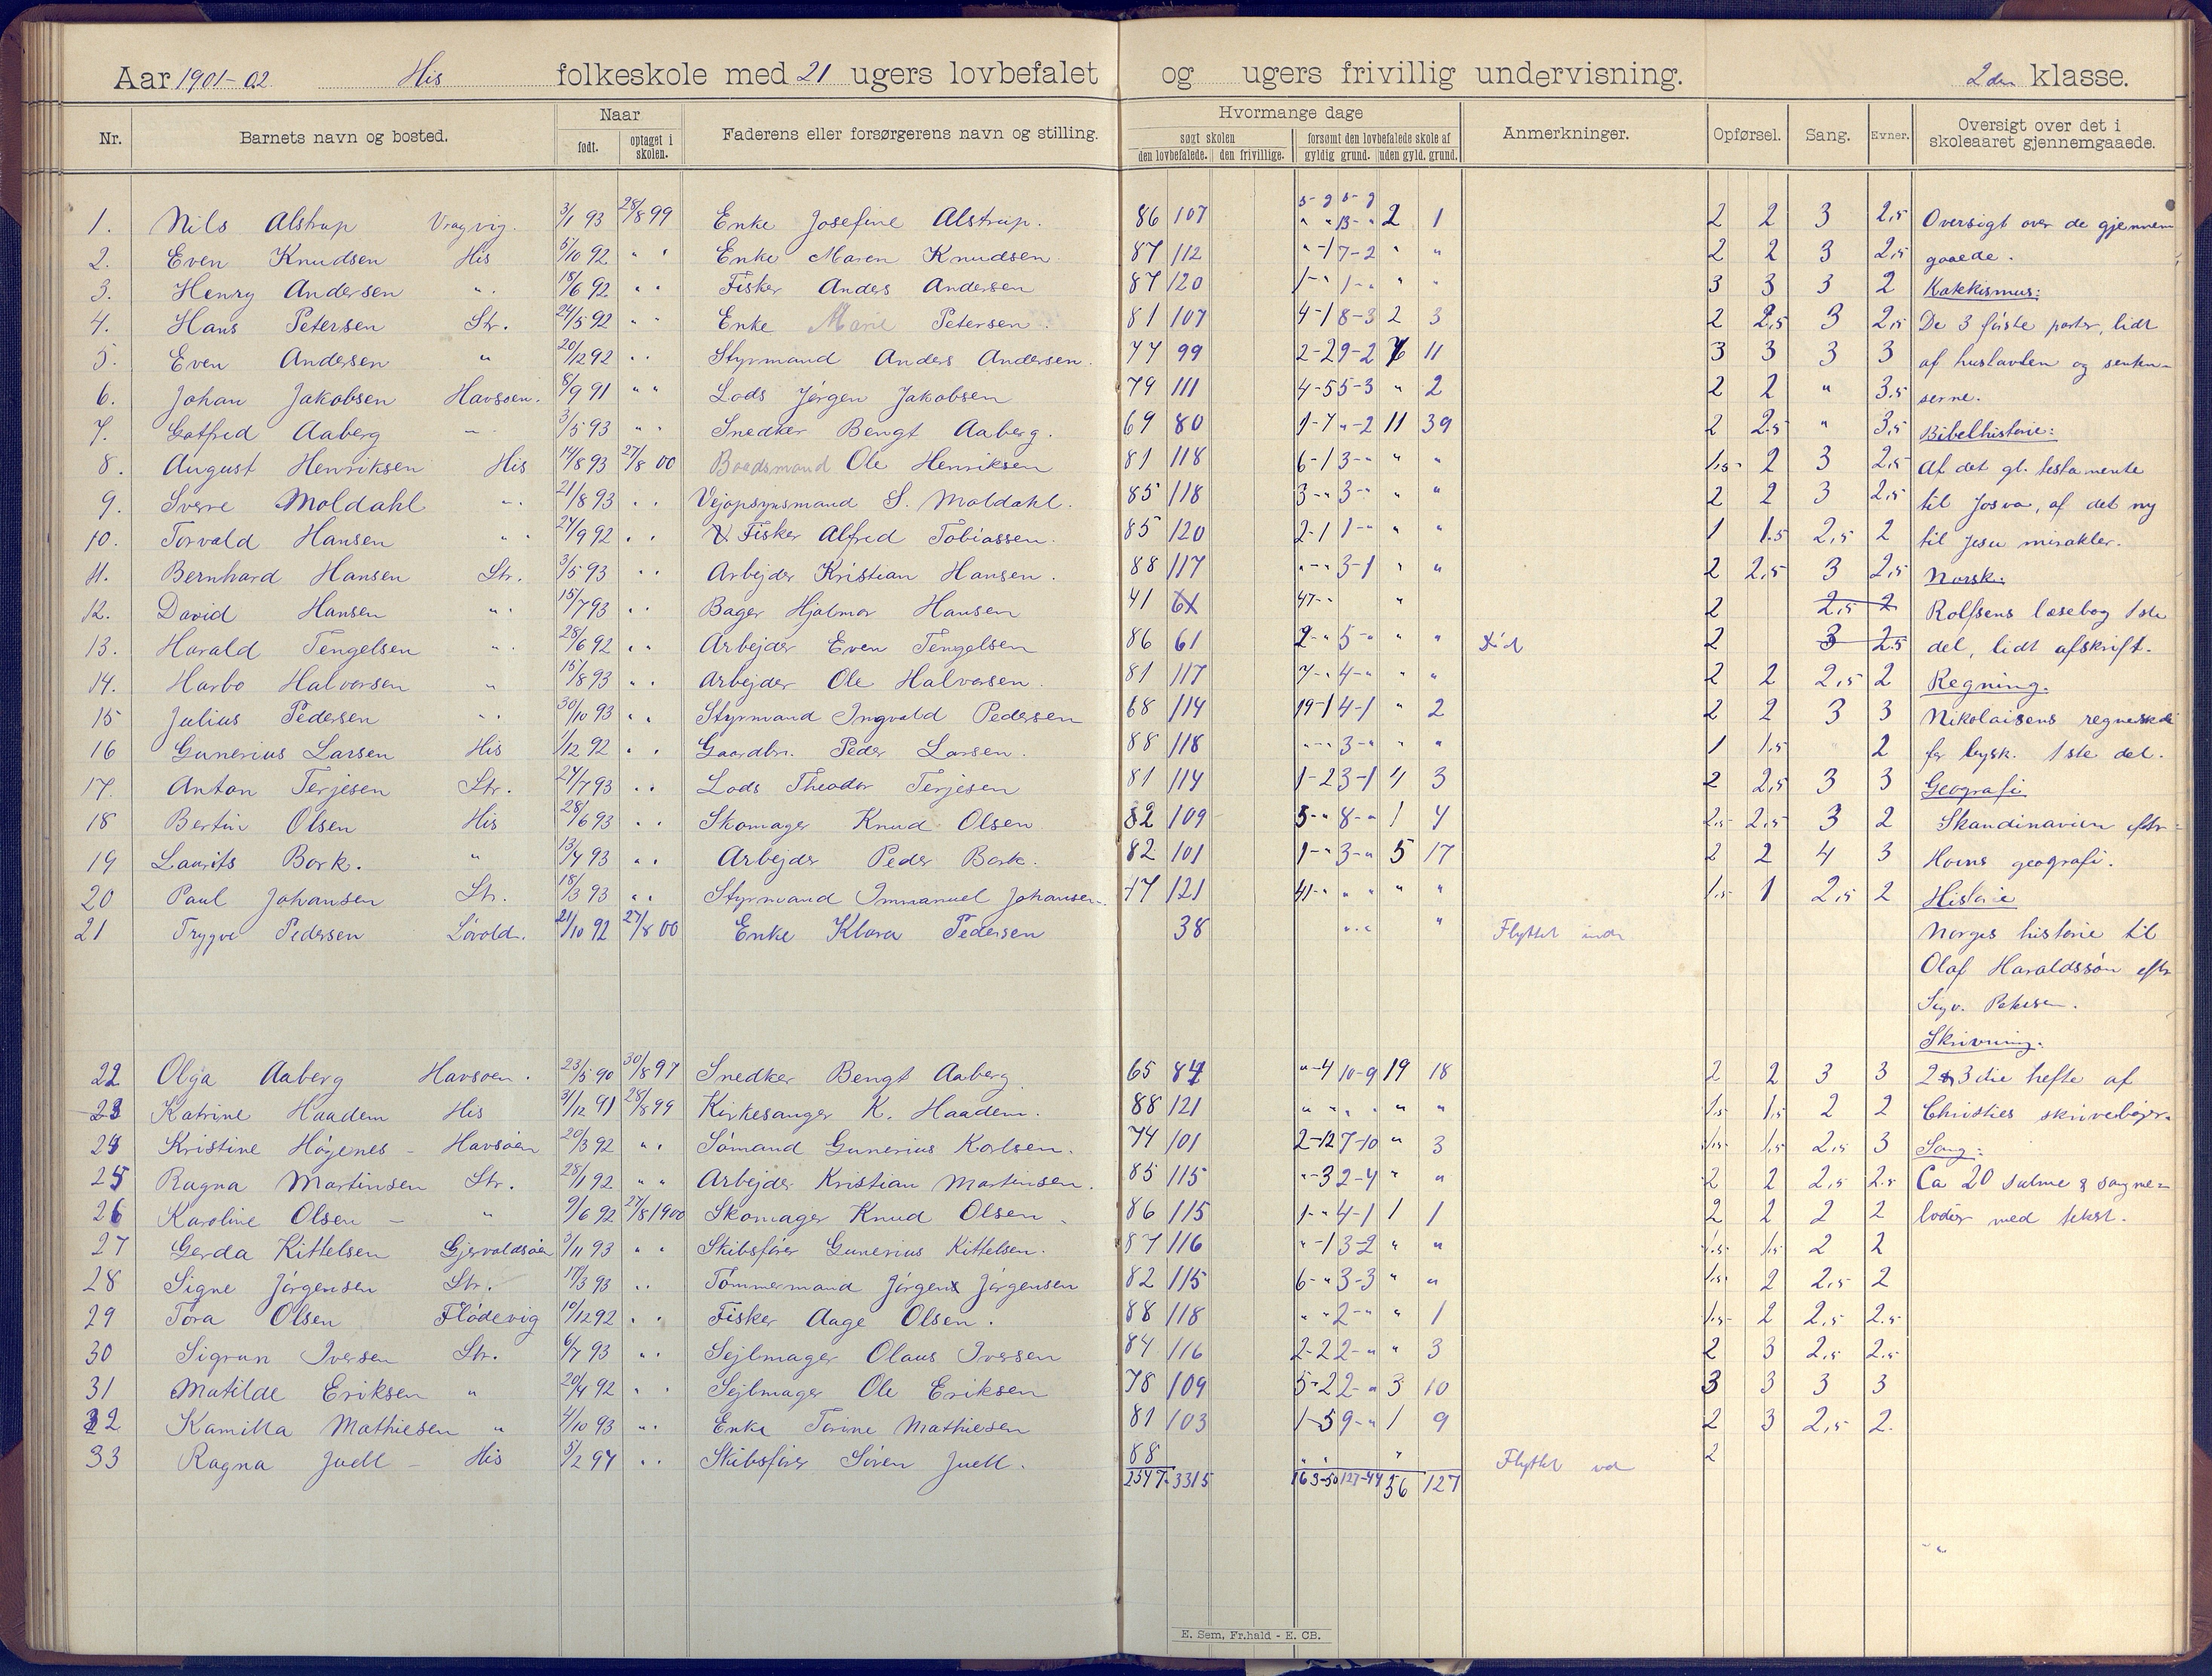 Aar 1901-02 His folkeskole med 21 ugers lovbefalet og ugers frivillig undervisning. 2den klasse.
Nr. Barnets navn og bosted. Naar født. optaget i skolen. Faderens eller forsørgerens navn og stilling. Hvormange dage søgt skolen den lovbefalede. den frivillige. forsømt den lovbefalede skole af gyldig grund. uden gyld. grund. Anmerkninger. Opførsel. Sang. Evner. Oversigt over det i skoleaaret gjennemgaaede.
1. Nils Alstrup Vragvig. 3/1 93 28/8 99 Enke Josefine Alstrup. 86 107 2 1 2 2 3 2,5 Oversigt over de gjennem
2. Even Knudsen His 5/10 92 " " Enke Maren Knudsen 87 112 "-1 7-2 " " 2 2 3 2,5 gaaede.
3. Henry Andersen " 18/6 92 " " Fisker Anders Andersen 87 120 1-" 1-" " " 3 3 3 2 Katekismus:
4. Hans Petersen Str. 24/5 92 " " Enke Marie Petersen. 81 107 4-1 8-3 2 3 2 2,5 3 2,5 De 3 første parter, lidt
5. Even Andersen " 20/12 92 " " Styrmand Anders Andersen. 77 99 2-2 9-2 11 3 3 3 3 af hustavlen og
6. Johan Jakobsen Havsøen. 8/9 91 " " Lods Jørgen Jakobsen 79 111 4-5 5-3 " 2 2 2 " 3,5
7. Gotfred Aaberg " 3/5 93 " " Snedker Bengt Aaberg. 69 80 1-7 "-2 11 39 2 2,5 " 3,5 Bibelhistorie:
8. August Henriksen His 14/8 93 27/8 00 Baadsmand Ole Henriksen 81 118 6-1 3-" " " 1,5 2 3 2,5 Af det gl. testamente
9. Sverre Moldahl " 21/8 93 " " Vejopsynsmand S. Moldahl. 85 118 3-" 3-" " " 2 2 3 2,5 til Josva, af det ny
10. Torvald Hansen " 24/9 92 " " Fisker Alfred Tobiassen. 85 120 2-1 1-" " " 1 1,5 2,5 2 til Jesu mirakler.
11. Bernhard Hansen Str. 3/5 93 " " Arbejder Kristian Hansen. 88 117 "-" 3-1 " " 2 2,5 3 2,5 Norsk.
12. David Hansen " 15/7 93 " " Bager Hjalmar Hansen 41 47-" " 2 2,5 2 Rolfsens læsebog 1ste
13. Harald Tengelsen " 28/6 92 " " Arbejder Even Tengelsen 86 61 2-" 5-" " " Død 2 3 2,5 del, lidt afskrift.
14. Harbo Halvorsen " 15/8 93 " " Arbejder Ole Halvorsen. 81 117 7-" 4-" " " 2 2 2,5 2 Regning.
15 Julius Pedersen " 30/10 93 " " Styrmand Ingvald Pedersen 68 114 19-1 4-1 " 2 2 2 3 3 Nikolaisens
16 Gunerius Larsen His 1/12 92 " " Gaardbr. Peder Larsen. 88 118 "-" 3-" " " 1 1,5 2 for bysk. 1ste del.
17. Anton Terjesen Str. 27/7 93 " " Lods Theodor Terjesen 81 114 1-2 3-1 4 3 2 2,5 3 3 Geografi
18 Bertin Olsen His 28/6 93 " " Skomager Knud Olsen 82 109 5-" 8-" 1 4 2,5 2,5 3 2 Skandinavien efter
19 Laurits Bork. " 13/4 93 " " Arbejder Peder Bork. 82 101 1-" 3-" 5 17 2 2 4 3 Horns geografi.
20 Paul Johansen Str. 18/3 93 " " Styrmand Immanuel Johansen. 47 121 41-" " " " 1,5 1 2,5 2 Historie
21 Trygve Pedersen Løvold. 21/10 92 27/8 00 Enke Klara Pedersen 38 " " Flyttet ind Norges historie til
Olaf Haraldssøn efter
Sigv. Petersen.
Skrivning.
22 Olga Aaberg Havsøen. 23/5 90 30/8 97 Snedker Bengt Aaberg. 65 84 "-4 10-9 19 18 2 2 3 3 2 & 3die hefte af
23 Katrine Haadem His 31/12 91 28/8 99 Kirkesanger K. Haadem. 88 121 " " " " " " 1,5 1,5 2 2 Christies skrivebøger.
24 Kristine Høgenes - Havsøen 20/3 92 " " Sømand Gunerius Karlsen. 74 101 2-12 7-10 " 3 1,5 1,5 2,5 3 Sang:
25 Ragna Martinsen Str. 28/1 92 " " Arbejder Kristian Martinsen. 85 115 "-3 2-4 " " 2 2 2,5 2,5 Ca 20 salme & sangme-
26 Karoline Olsen - " 9/6 92 27/8 1900 Skomager Knud Olsen 86 115 1-" 4-1 1 1 2 2 2 2 lodier med tekst.
27 Gerda Kittelsen Gjervoldsøen 3/11 93 " " Skibsfører Gunerius Kittelsen. 87 116 "-1 3-2 " " 1,5 1,5 2 2
28 Signe Jørgensen Str. 17/3 93 " " Tømmermand Jørgen Jørgensen 82 115 6-" 3-3 " " 1,5 2 2,5 2
29 Tora Olsen Flødevig 10/12 92 " " Fisker Aage Olsen. 88 118 " " 2-" " 1 1,5 2 2,5 2,5
30 Sigrun Iversen Str. 6/7 93 " " Sejlmager Olaus Iversen 84 116 2-2 2-" " 3 2 3 2,5 2,5
31 Matilde Eriksen " 20/4 92 " " Sejlmager Ole Eriksen 78 109 5-2 2-" 3 10 3 3 3 3
32 Kamilla Mathiesen " 4/10 93 " " Enke Tarine Mathiesen 81 103 1-5 9-" 1 9 2 3 2,5 2.
33 Ragna Juell - His 5/2 94 " " Skibsfører Søren Juell. 88 " " " Flyttet ud 2
2547 3315 163-50 127-44 56 127
E. Sem, Fr.hald - E. CB.